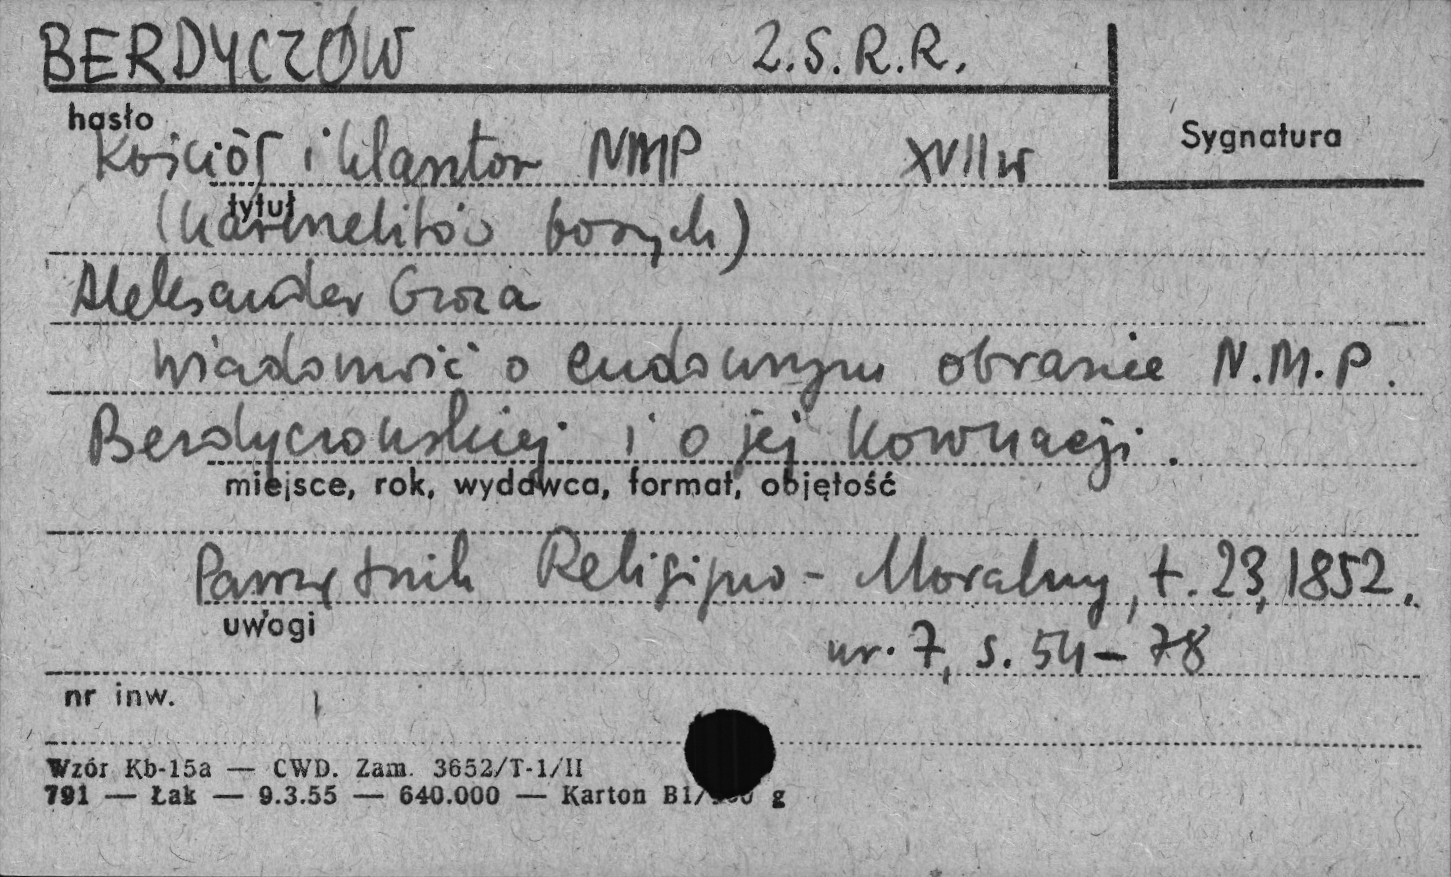 BERDYCZÓW Z.S.R.R.
hasło
Sygnatura
Kościół i klasztor NMP XVII w
tytuł
(karmelitów bosych)
Aleksander Groza
Wiadomość o cudownym obrazie N.M.P.
Berdyczowskiej i o jej koronacji.
miejsce, rok, wydawca, format, objętość
Pamiętnik Religijno-Moralny, t. 23, 1852,
uwagi
nr. 7, s. 54-78
nr inw.
Wzór Kb-15a — CWD. Zam. 3652/T-1/II
791 — Łak — 9.3.55 — 640.000 — Karton B1/ g